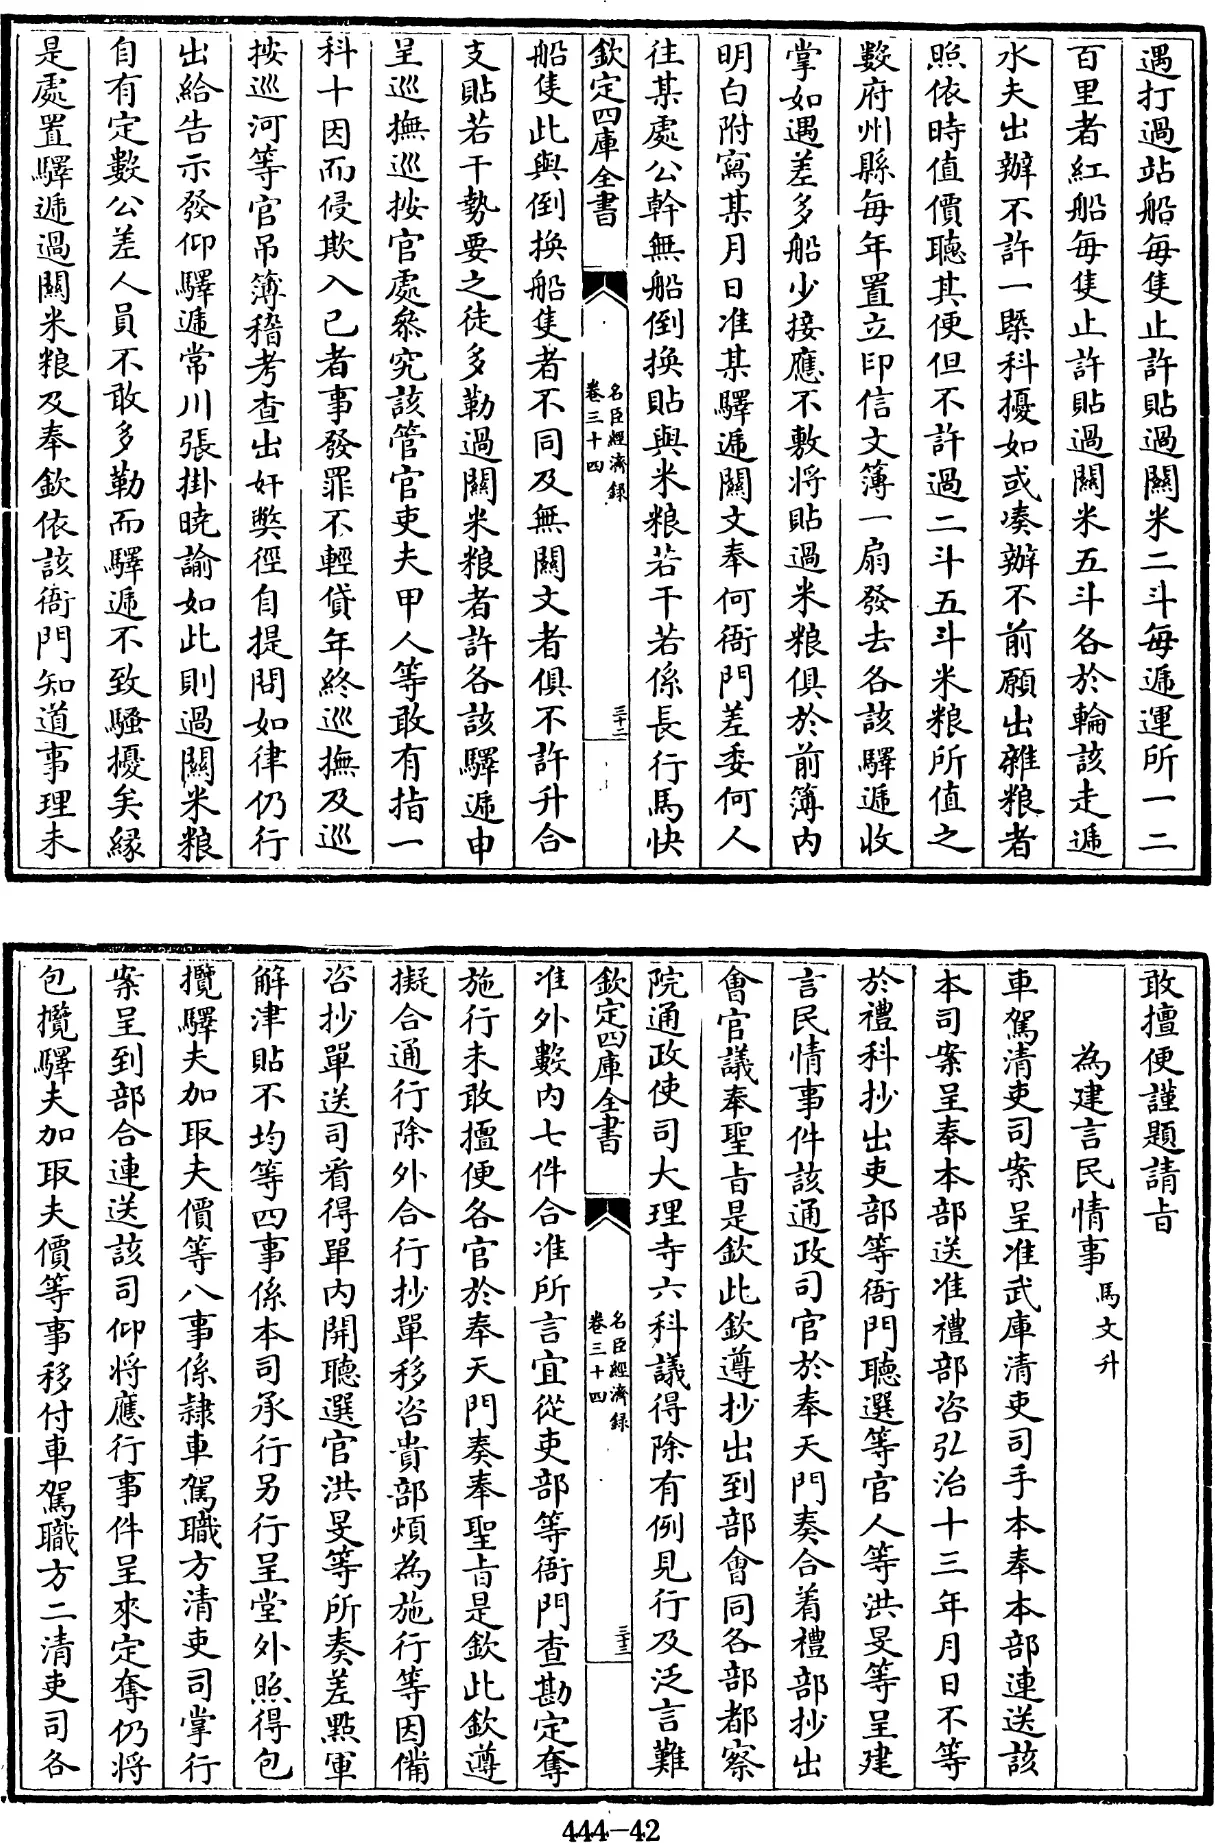 遇打過站船每隻止許貼過關米二斗每逓運所一二
百里者紅船每隻止許貼過關米五斗各於輪該走逓
水夫出辦不許一槩科擾如或凑辦不前願出雜粮者
照依時值價聽其便但不許過二斗五斗米粮所值之
數府州縣每年置立印信文簿一扇發去各該驛逓收
掌如遇差多船少接應不敷將貼過米粮俱於前簿内
明白附寫某月日准某驛逓關文奉何衙門差委何人
往某處公幹無船倒換貼與米粮若干若係長行馬快
欽定四庫全書
名臣經濟録
卷三十四
三十二
船隻此與倒換船隻者不同及無關文者俱不許升合
支貼若干勢要之徒多勒過關米粮者許各該驛逓申
呈巡撫巡按官處叅究該管官吏夫甲人等敢有指一
科十因而侵欺入已者事發罪不輕貸年終巡撫及巡
按巡河等官吊簿稽考查出奸弊徑自提問如律仍行
出給告示發仰驛逓常川張掛曉諭如此則過關米粮
自有定數公差人員不敢多勒而驛逓不致騷擾矣縁
是處置驛逓過關米粮及奉欽依該衙門知道事理未
敢擅便謹題請㫖
為建言民情事 馬文升
車駕清吏司案呈准武庫清吏司手本奉本部連送該
本司案呈奉本部送准禮部咨弘治十三年月日不等
於禮科抄出吏部等衙門聽選等官人等洪旻等呈建
言民情事件該通政司官於奉天門奏合着禮部抄出
會官議奉聖㫖是欽此欽遵抄出到部會同各部都察
院通政使司大理寺六科議得除有例見行及泛言難
欽定四庫全書
名臣經濟録
卷三十四
三十三
准外數内七件合准所言宜從吏部等衙門查勘定奪
施行未敢擅便各官於奉天門奏奉聖㫖是欽此欽遵
擬合通行除外合行抄單移咨貴部煩為施行等因備
咨抄單送司看得單内開聽選官洪旻等所奏差點軍
解津貼不均等四事係本司承行另行呈堂外照得包
攬驛夫加取夫價等八事係隸車駕職方清吏司掌行
案呈到部合連送該司仰將應行事件呈來定奪仍將
包攬驛夫加取夫價等事移付車駕職方二清吏司各
444-42